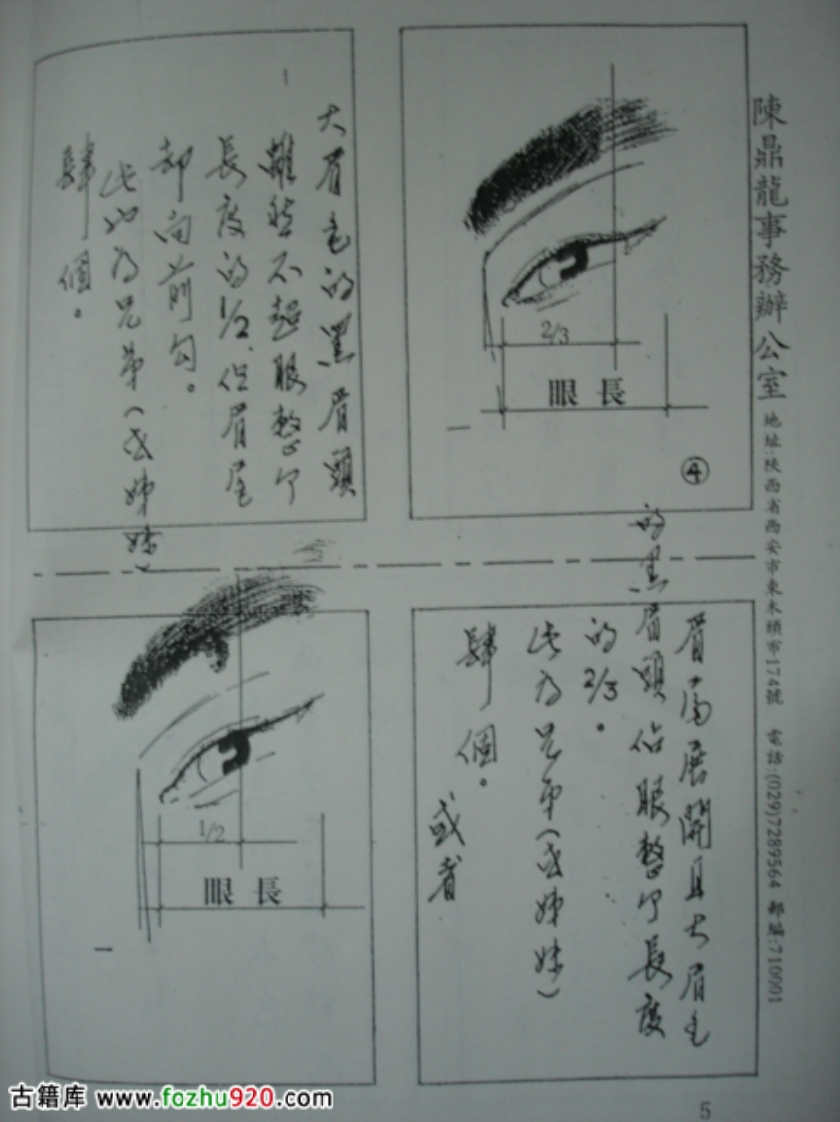 陳鼎龍事務辦公室 地址:陝西省西安市東木頭市174號 電話:(029)7289564 郵編:710001
2/3
眼 長
④
眉尾展開且大眉毛
的黑眉頭佔眼整个長度
的2/3。
此为兄弟(或姊妹)
肆個。
或者
大眉毛的黑眉頭
雖然不超眼整个
長度的1/2,但眉尾
却向前勾。
此也为兄弟(或姊妹)
肆個。
1/2
眼 長
5
古籍库 www.fozhu920.com